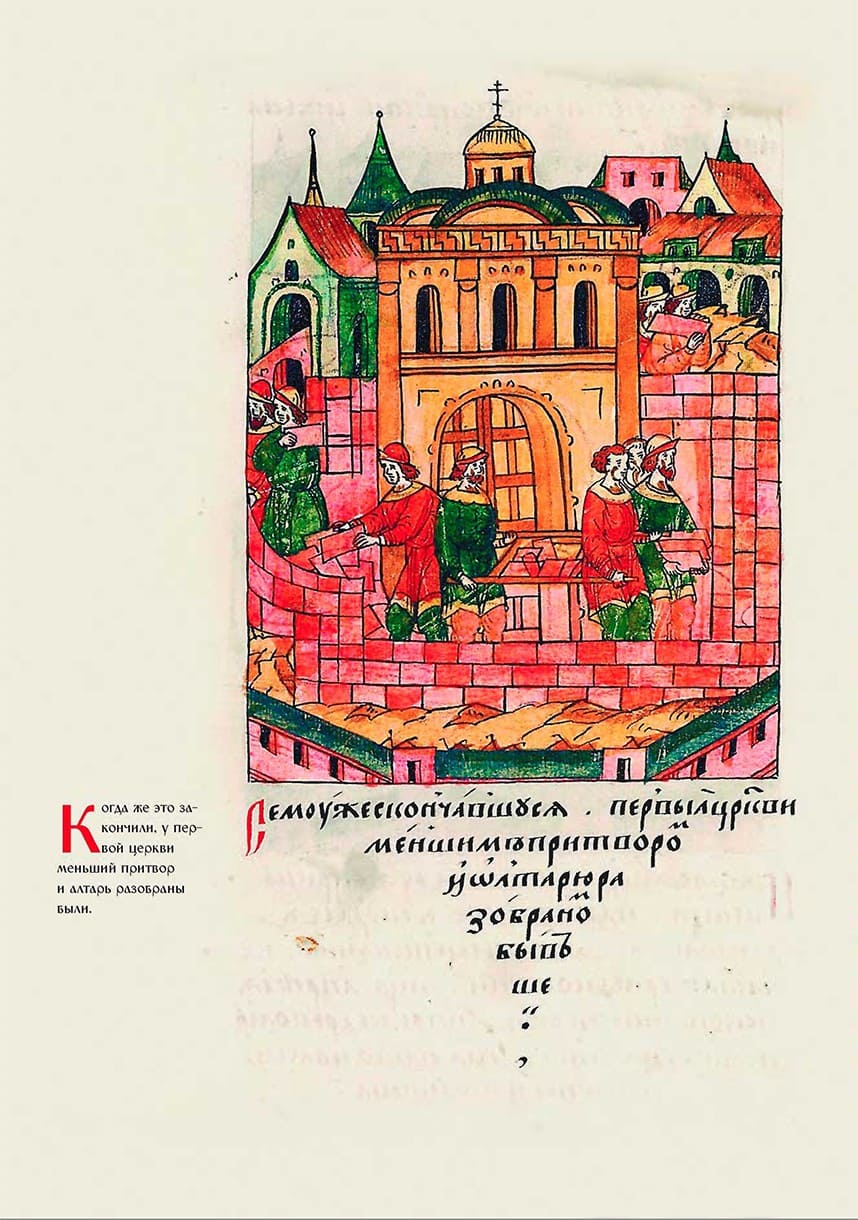 Когда же это за-
кончили, у пер-
вой церкви
меньший притвор
и алтарь разобраны
были.
Семоужескончавшуся . первыѧцр҃кви
меншимъпритворо
иѡлтарюра
зобрано
бывъ
ше